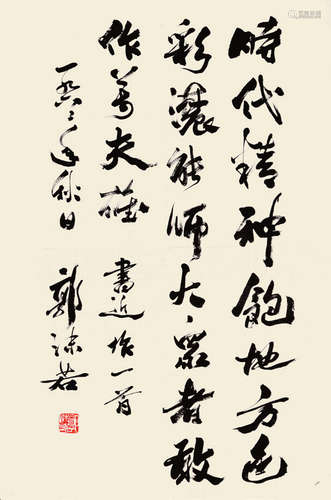 時代精神飽地方色
彩濃能師大〻器者敢
作万夫雄 書近作一首
一九六二年秋日
郭沫若